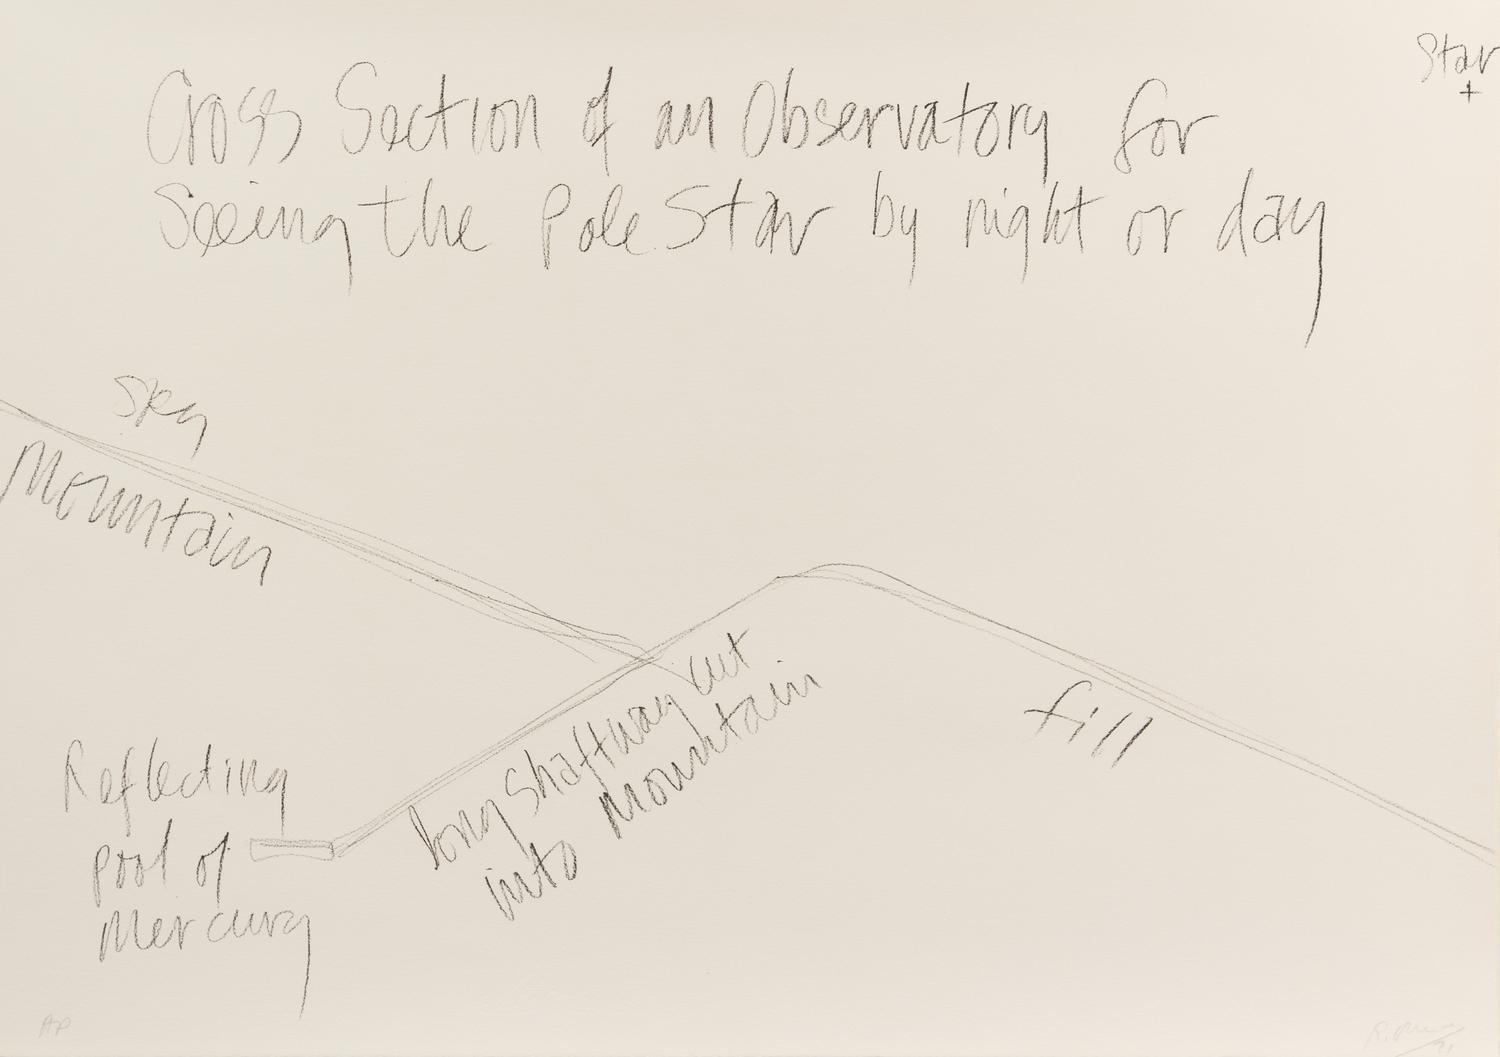 Star
+
Cross Section of an Observatory for
Seeing the Pole Star by night or day
Sky
Mountain
long shaftway cut
into mountain
fill
Reflecting
pool of
Mercury
AP